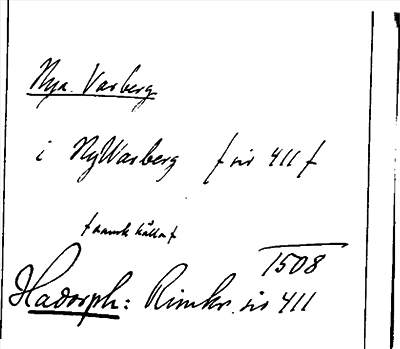 Nya Varberg
i NyWarberg f sid 411 f
f dansk källa f
1508
Hadorph: Rimkr. sid 411